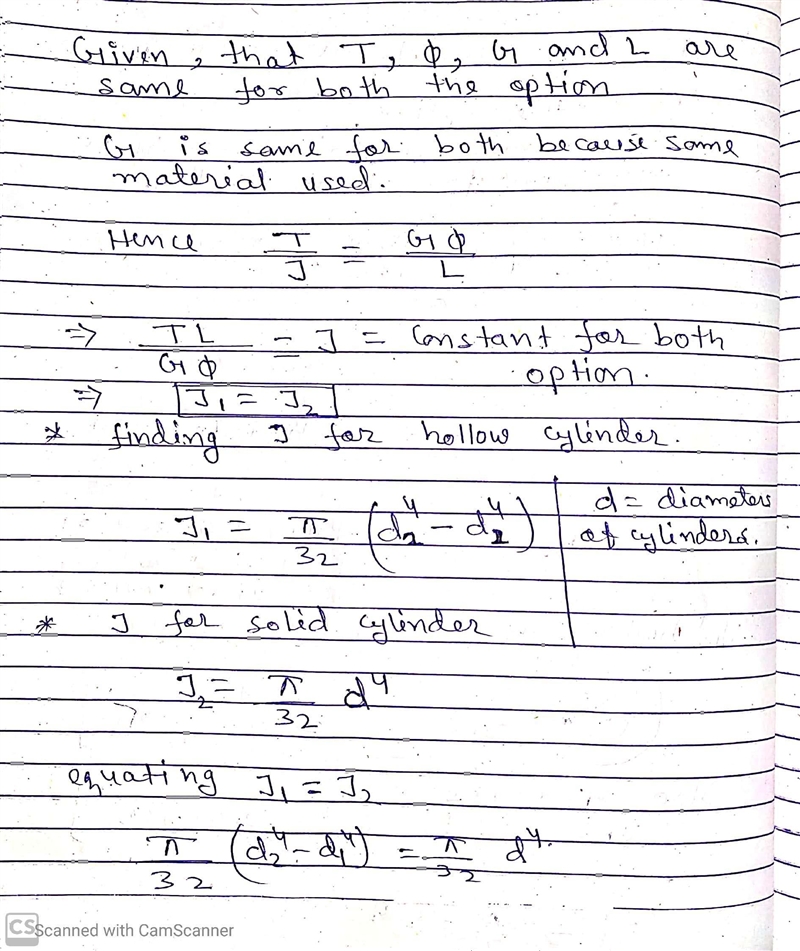 Given, that T, φ, G and L are
same for both the option
G is same for both because same
material used.
Hence T/J = Gφ/L
⇒ TL/Gφ = J = Constant for both
option.
⇒ J₁ = J₂
* finding J for hollow cylinder.
J₁ = π/32 (d₂⁴ - d₁⁴)
d = diameters
of cylinders.
* J for solid cylinder
J₂ = π/32 d⁴
equating J₁ = J₂
π/32 (d₂⁴ - d₁⁴) = π/32 d⁴.
CS Scanned with CamScanner